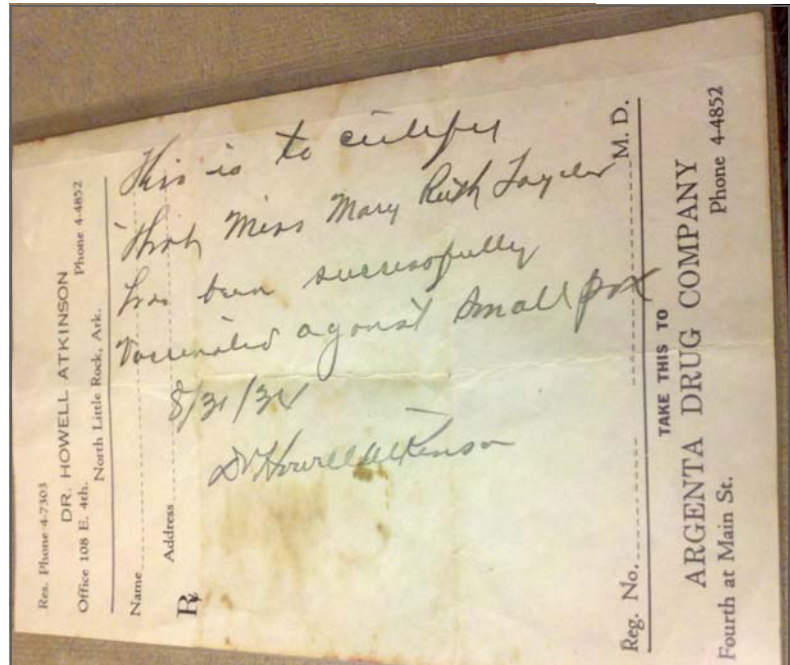 Res. Phone 4-7303
DR. HOWELL ATKINSON
Office 108 E. 4th. Phone 4-4852
North Little Rock, Ark.
Name
Address
This is to certify
that Miss Mary Ruth Taylor
has been successfully
Vaccinated against Small pox
8/31/
Dr Howell Atkinson
Rx
M. D.
Reg. No.
TAKE THIS TO
ARGENTA DRUG COMPANY
Fourth at Main St. Phone 4-4852